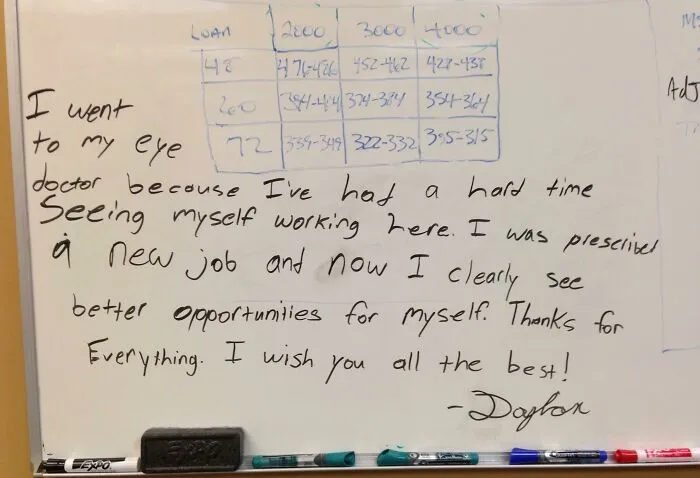 LOAN 2000 3000 4000
48 476-486 452-462 428-438
60 374-384 354-364
72 339-349 322-332 305-315
I went
to my eye
doctor because I've had a hard time
Seeing myself working here. I was prescribed
a new job and now I clearly see
better opportunities for myself. Thanks for
Everything. I wish you all the best!
AdJ
EXPO
EXPO